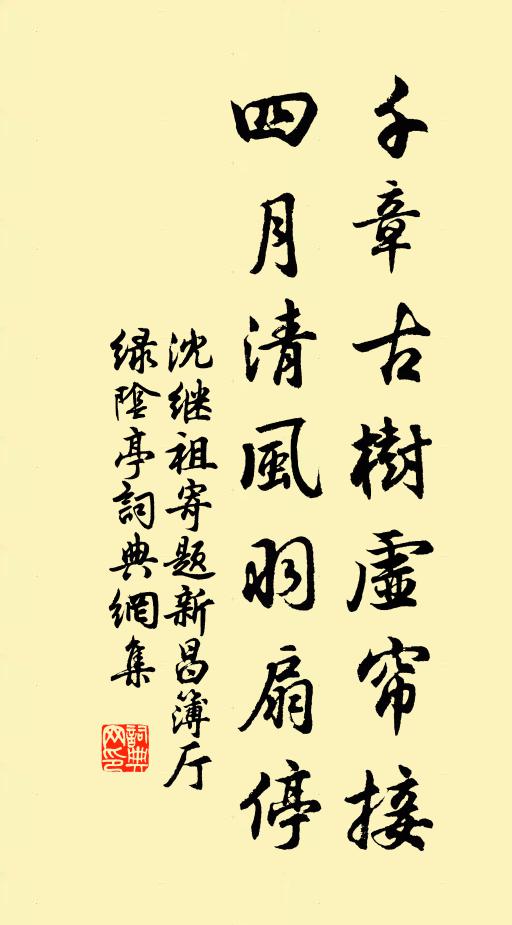 千章古樹虛帘接
四月清風羽扇停
沈继祖寄题新昌簿厅
绿陰亭詞典網集
詞典网印